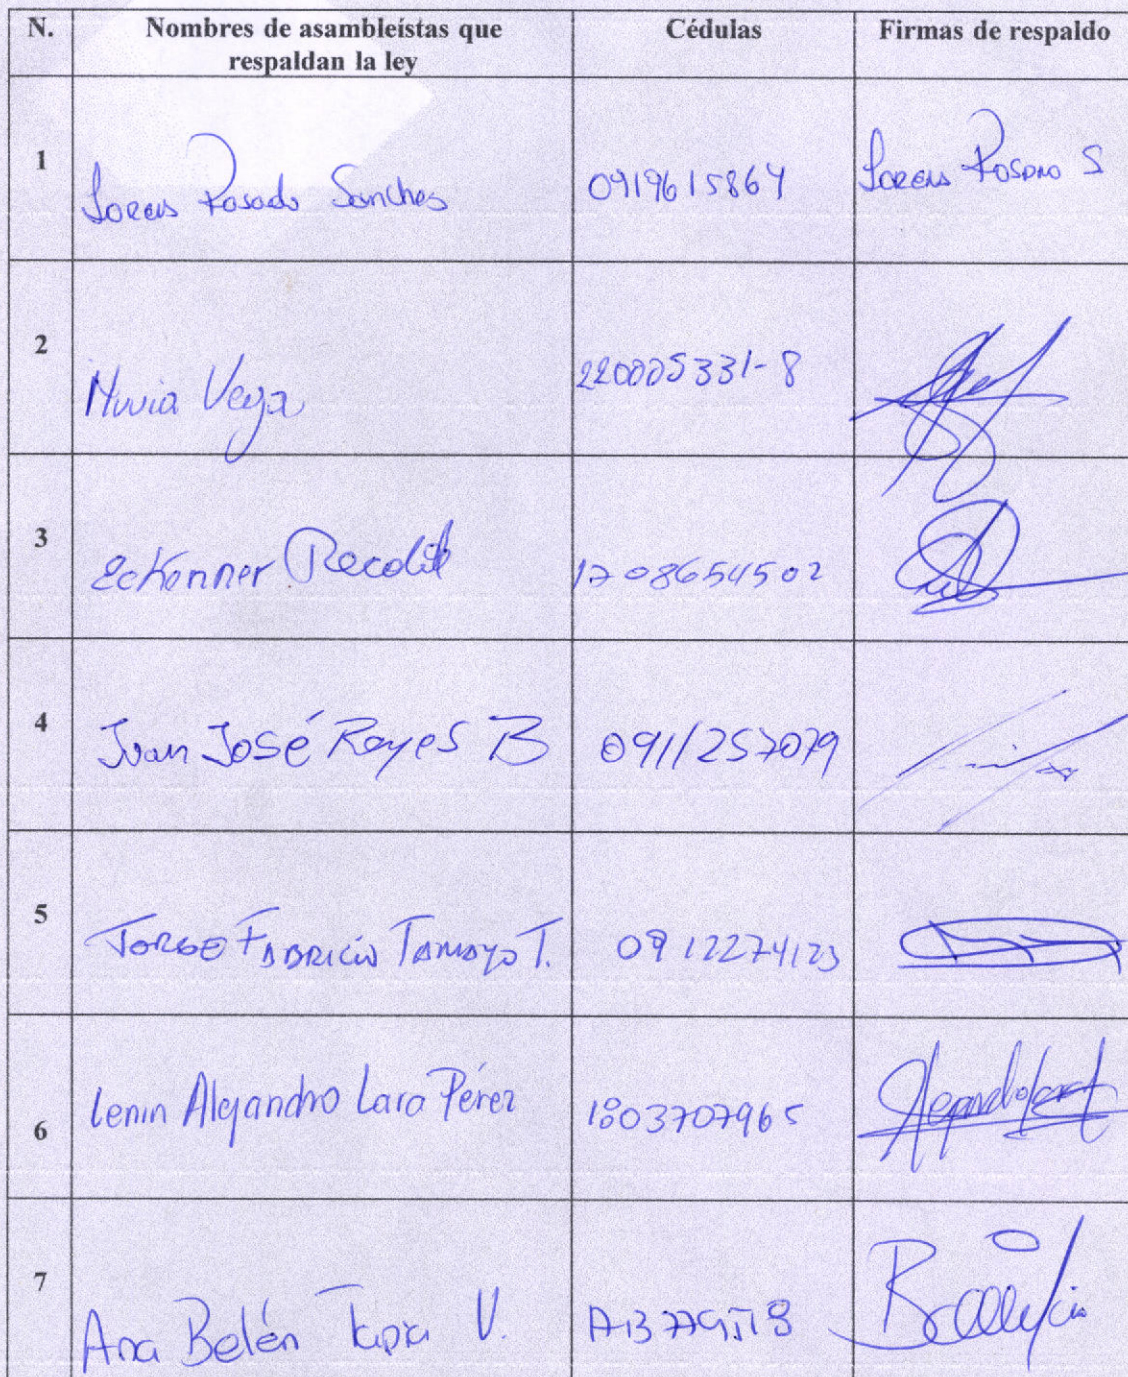 N. Nombres de asambleístas que respaldan la ley Cédulas Firmas de respaldo
1 Rosado Sanches 0919615864
2 Vega 220005331-8
3 Eckenner Recalde 1708654502
4 Juan José Reyes B 0911257079
5 Jorge Fabricio Tamayo T. 0912274123
6 Lenin Alejandro Lara Pérez 1803707965
7 Ana Belén Tapia V.